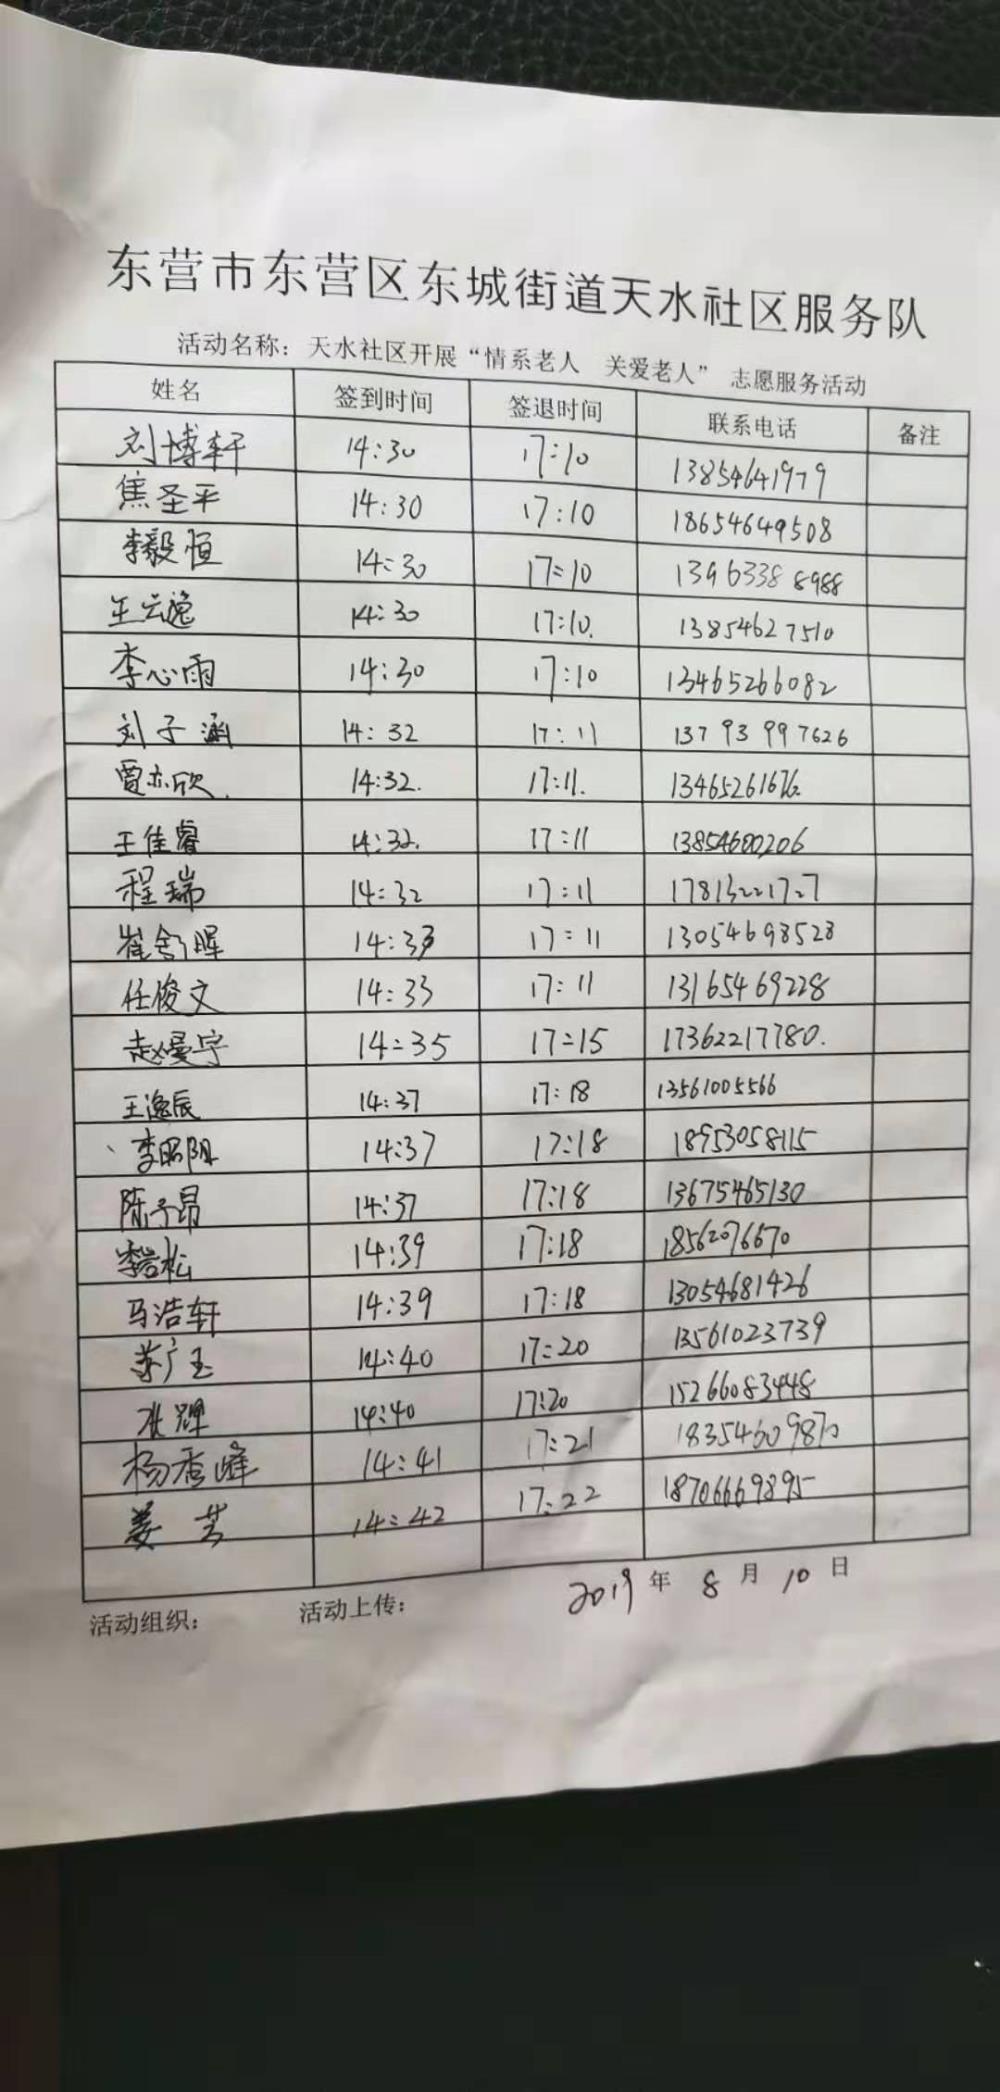 东营市东营区东城街道天水社区服务队
活动名称：天水社区开展“情系老人 关爱老人” 志愿服务活动
姓名 签到时间 签退时间 联系电话 备注
刘博轩 14:30 17:10 13854641979
焦圣平 14:30 17:10 18654649508
李毅恒 14:30 17:10 13963388988
王云逸 14:30 17:10. 13854627510
李心雨 14:30 17:10 13465266082
刘子涵 14:32 17:11 13793997626
贾亦欣. 14:32. 17:11.
王佳睿 14:32. 17:11 13854600206
程瑞 14:32 17:11 17813221727
崔舒晖 14:33 17:11 13054698528
任俊文 14:33 17:11 13165469228
赵曼宇 14:35 17:15 17362217780.
王逸辰 14:37 17:18 13561005566
李昭阳 14:37 17:18 18953058115
陈子昂 14:37 17:18 13675465130
李岩松 14:39 17:18 18562076670
马浩轩 14:39 17:18 13054681426
苏广玉 14:40 17:20 13561023739
14:40 17:20 15266083448
杨秀峰 14:41 17:21
姜芳 14:42 17:22 18706669895
2019年 8月 10日
活动组织： 活动上传：